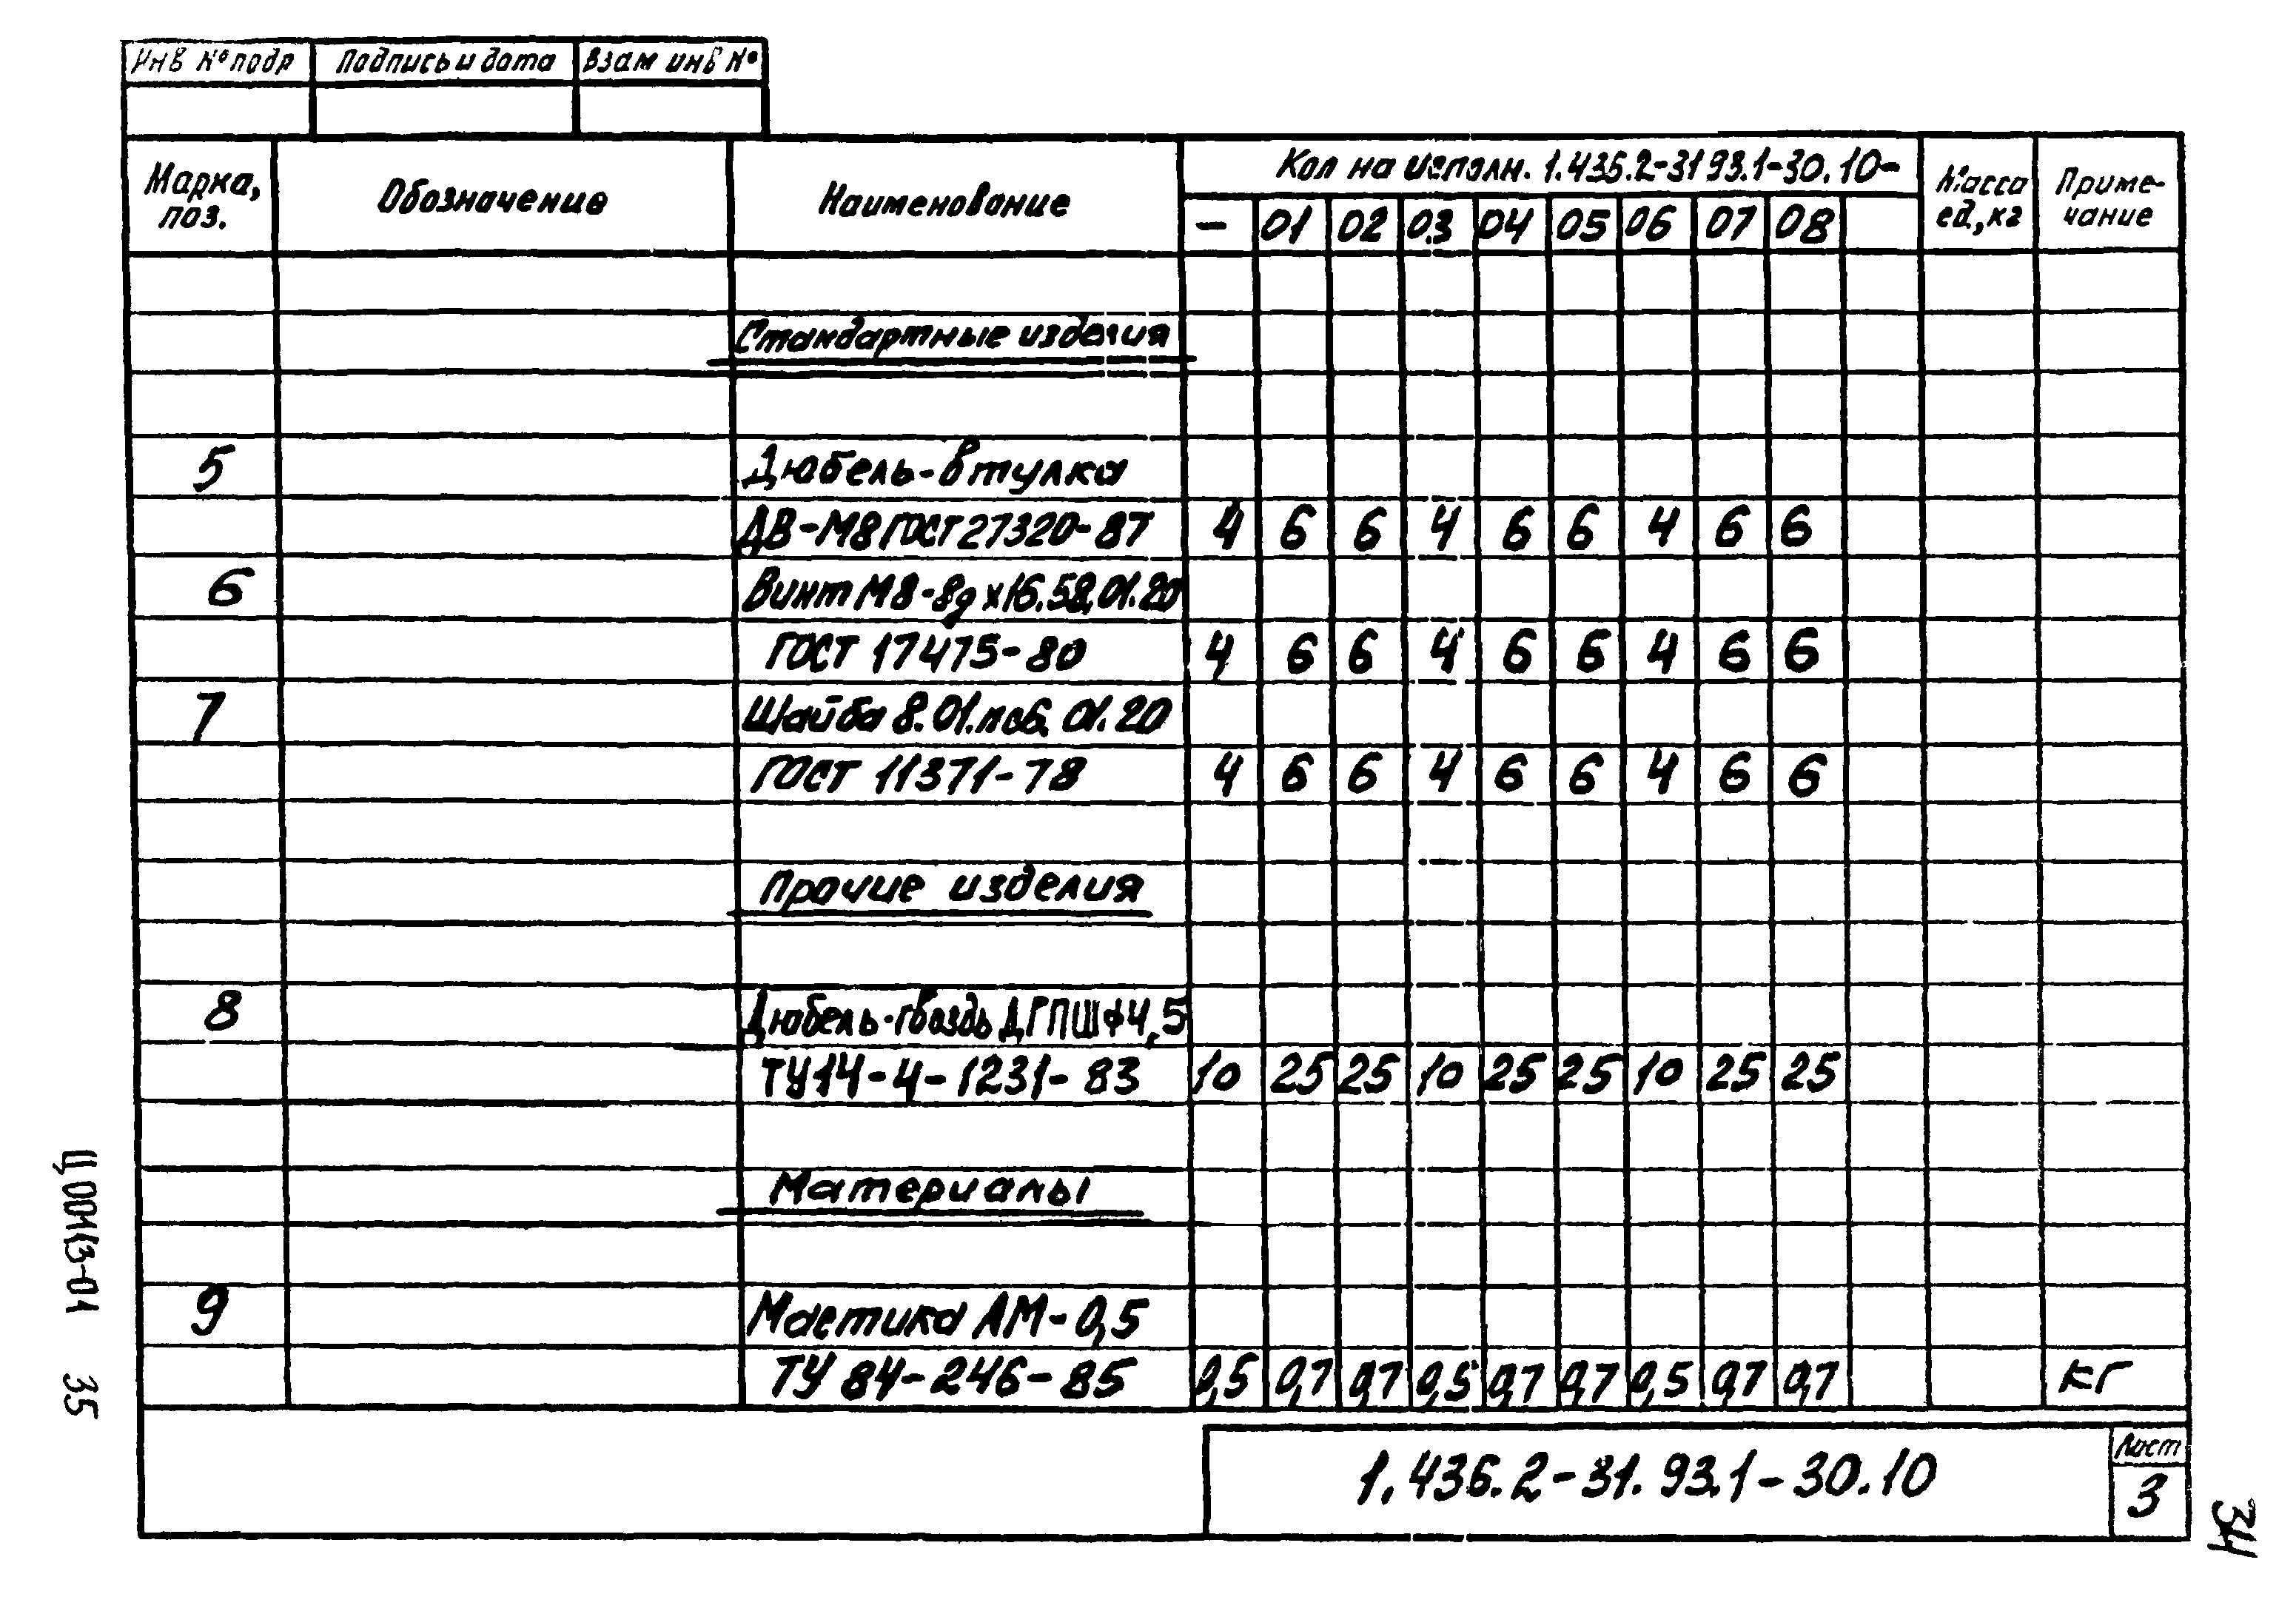 Инв № подр Подпись и дата Взам инв №
Марка, поз. Обозначение Наименование Кол на исполн. 1.436.2-31 93.1-30.10- Масса ед, кг Приме-чание
- 01 02 03 04 05 06 07 08
Стандартные изделия
5 Дюбель-втулка
ДВ-М8 ГОСТ 27320-87 4 6 6 4 6 6 4 6 6
6 Винт М8-8gх16.58.01.20
ГОСТ 17475-80 4 6 6 4 6 6 4 6 6
7 Шайба 8.01.пс6.01.20
ГОСТ 11371-78 4 6 6 4 6 6 4 6 6
Прочие изделия
8 Дюбель-гвоздь ДГПШ ф4,5
ТУ14-4-1231-83 10 25 25 10 25 25 10 25 25
Материалы
9 Мастика АМ-0,5
ТУ 84-246-85 0,5 0,7 0,7 0,5 0,7 0,7 0,5 0,7 0,7 кг
1.436.2-31.93.1-30.10
Лист
3
35
34